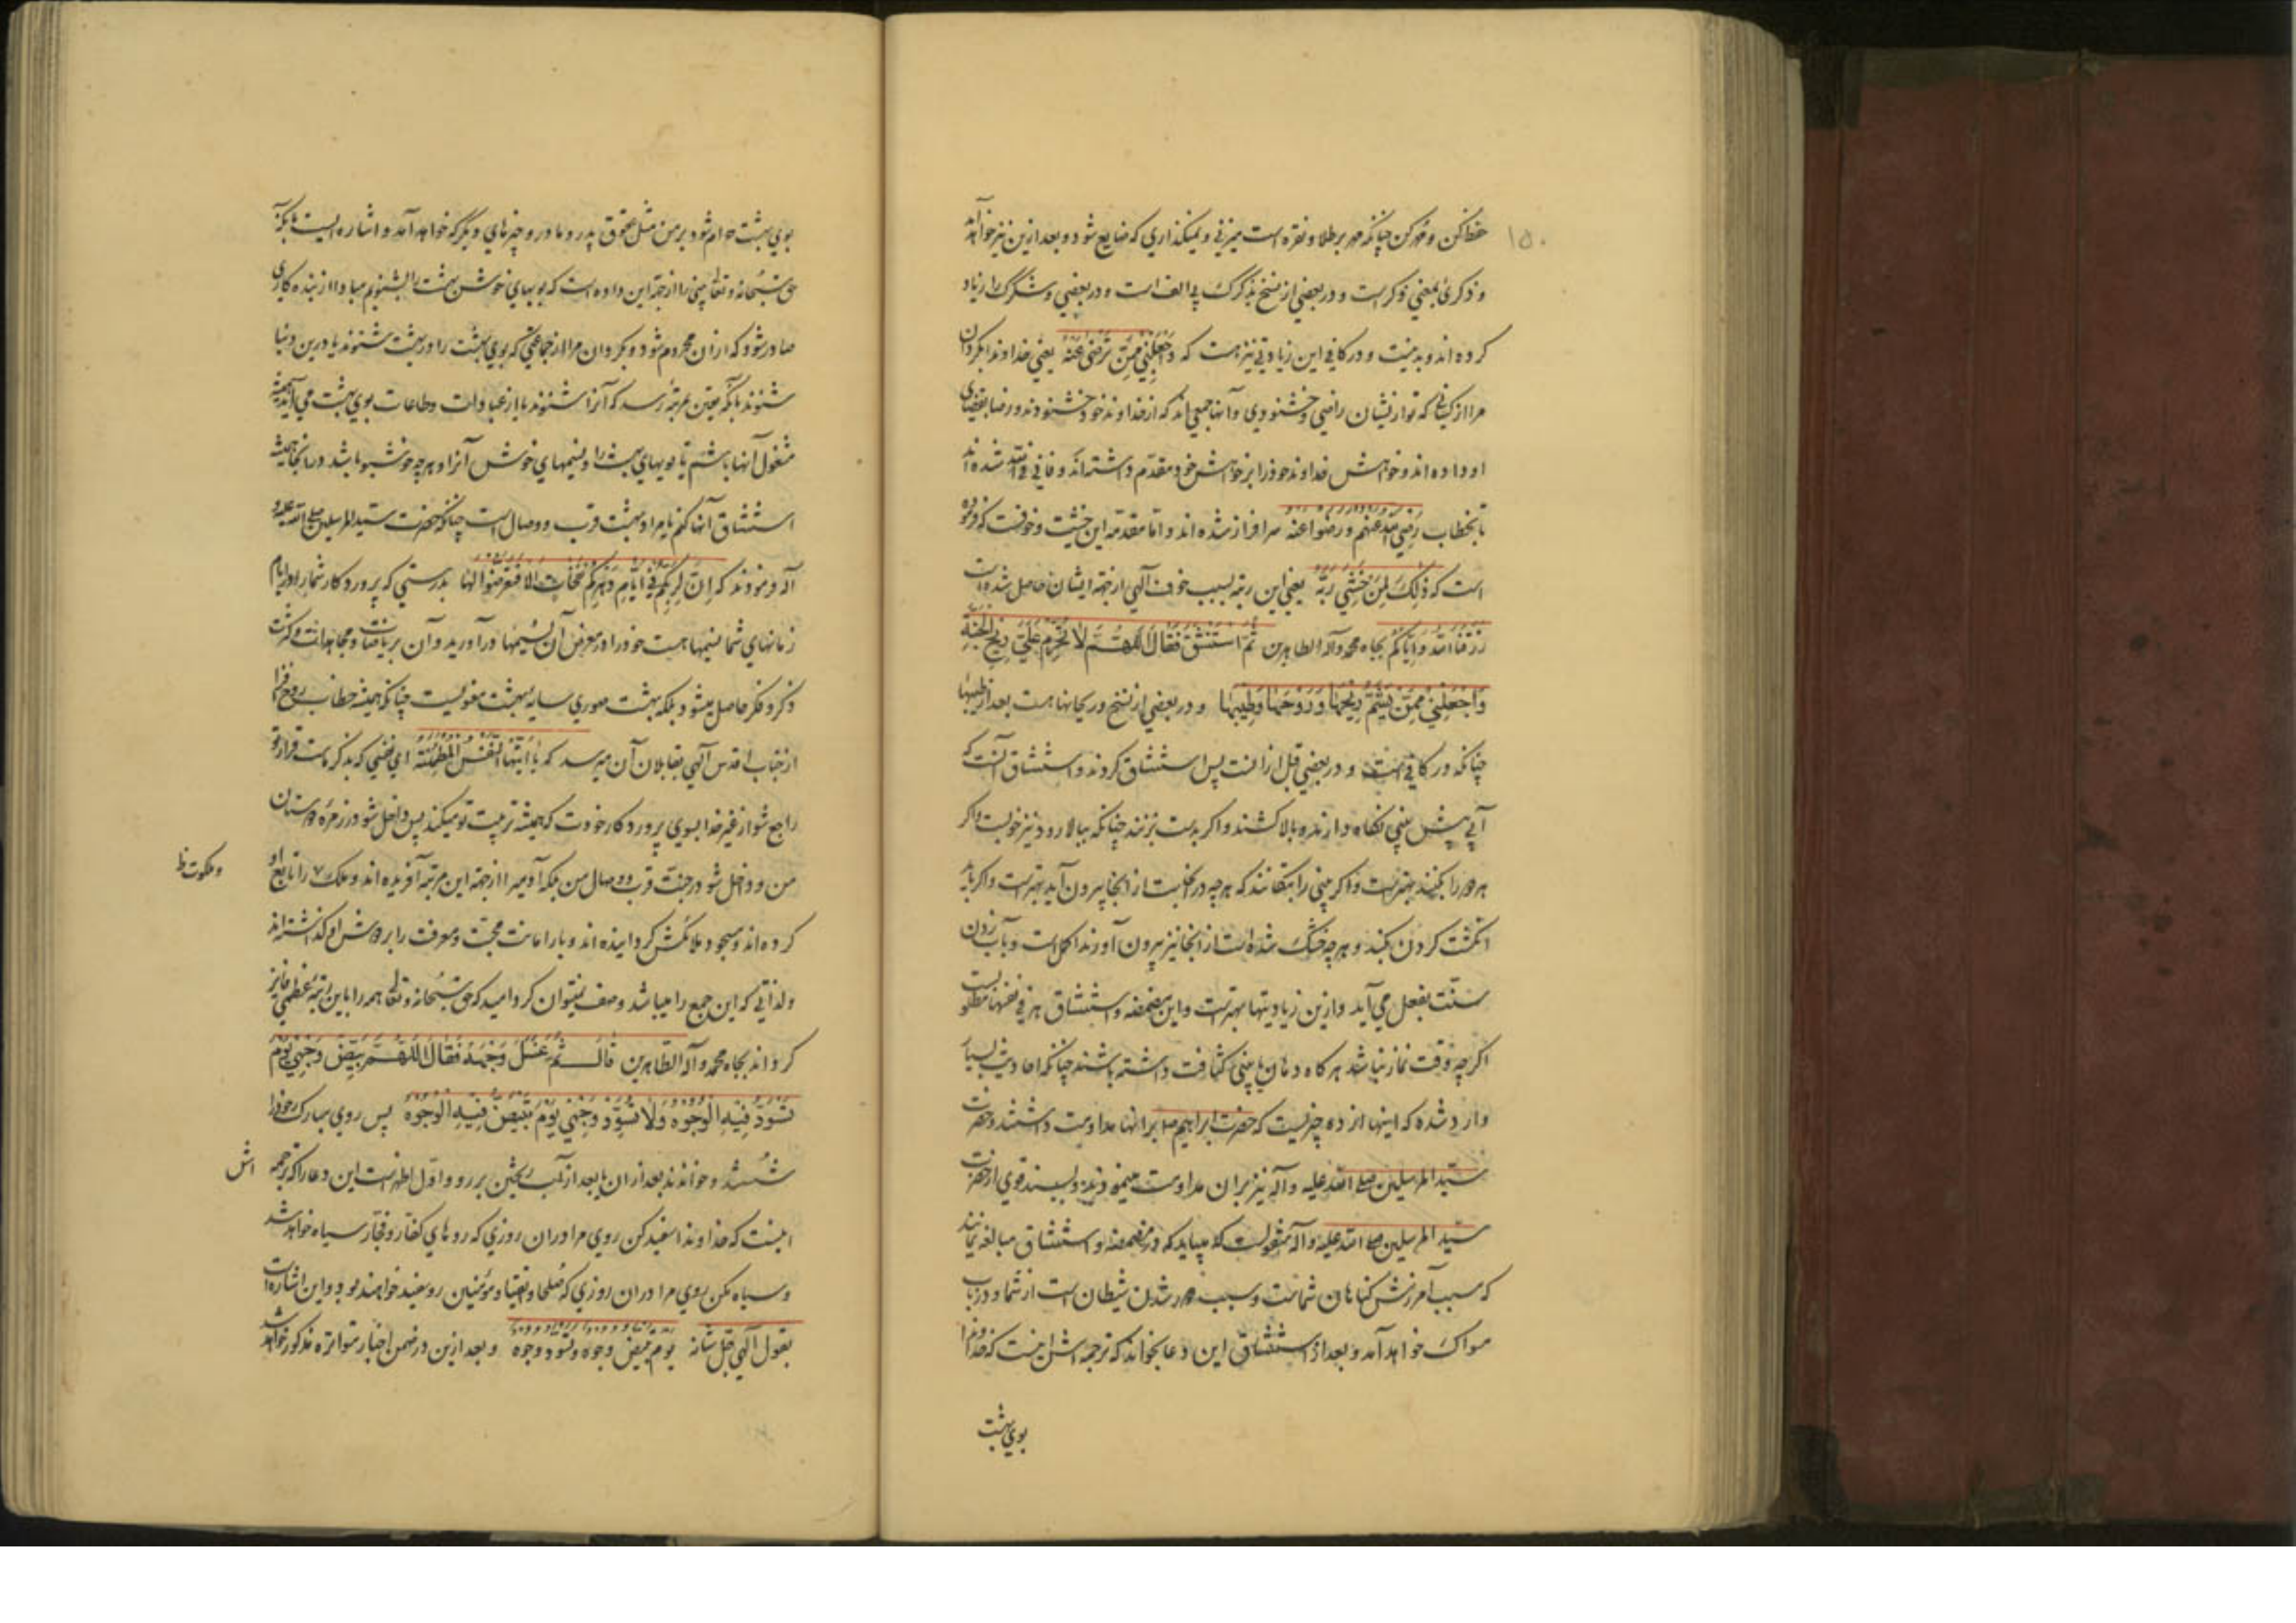 ۱۵۰
حفظ کن و مهر کن چنانکه مهر بر طلا و نقره است میزنی و نمیگذاری که ضایع شود و بعد ازین نیز خواهد آمد
و ذکری بمعنی ذکر است و در بعضی از نسخ بذکرک بی الف است و در بعضی و شکرک را زیاد
کرده اند و بد نیست و در کافی این زیادتی نیز هست که وَاجْعَلْنِي مِمَّنْ تَرْضَى عَنْهُ یعنی خداوندا بگردان
مرا از کسانی که تو از یشان راضی و خشنودی و آنها جمعی اند که از خداوند خود خشنودند و رضا بقضای
او داده اند و خواهش خداوند خود را بر خواهش خود مقدم داشته اند و فانی فی الله شده اند
تا بخطاب رضي الله عنهم ورضوا عنه سرافراز شده اند و اما مقدمه این خشیت و خوفست که فرموده
است که ذلِكَ لِمَنْ خَشِيَ رَبَّهُ یعنی این رتبه بسبب خوف الهی از جهة ایشان حاصل شده است
رزقنا الله وایاکم بجاه محمد وآله الطاهرین ثُمَّ اسْتَنْشَقَ فَقَالَ اللّهُمَّ لَا تُحَرِّمْ عَلَيَّ رِيحَ الْجَنَّةِ
وَاجْعَلْنِي مِمَّنْ يَشَمُّ رِيحَهَا وَرَوْحَهَا وَطِيبَهَا و در بعضی از نسخ وریحانها هست بعد از طیبها
چنانکه در کافی است و در بعضی قبل از آنست پس استنشاق کردند و استنشاق آنست که
آبی به پیش بینی نگاه دارند و بالا کشند و اگر بدست بزنند چنانکه ببالا رود نیز خوبست و اگر
هر دو را بکنند بهتر است و اگر بینی را بتکانند که هر چه در آنجاست از آنجا بیرون آید بهتر است و اگر باید
انگشت کردن بکنند و هر چه خشک شده است از انجا نیز بیرون آورند اکمل است و بآب زدن
سنت بفعل می آید و ازین زیادیتها بهتر است و این مضمضه و استنشاق هر فی نفسها مطلوبست
اگر چه وقت نماز نباشد هر گاه دهان یا بینی کثافت داشته باشند چنانکه احادیث بسیار
وارد شده که اینها از ده چیزیست که حضرت ابراهیم بر انها مداومت داشتند و حضرت
سید المرسلین صلی الله علیه وآله نیز بران مداومت مینمودند و بسند قوی از حضرت
سید المرسلین صلی الله علیه وآله منقولست که میباید که در مضمضه و استنشاق مبالغه نمایند
که سبب آمرزش گناهان شماست و سبب دور شدن شیطان است از شما و در باب
مسواک خواهد آمد و بعد از استنشاق این دعا بخواند که ترجمه اش اینست که خداوندا
بوی بهشت
بوی بهشت حرام شود بر من مثل عقوق پدر و مادر و چیزهای دیگر که خواهد آمد و اشاره ایست بانکه
حق سبحانه و تعالی بینی را از جهة این داده است که بویهای خوش بهشت را بشنویم مبادا از بنده کاری
صادر شود که ازان محروم شود و بگردان مرا از جماعتی که بوی بهشت را در بهشت شنوند یا درین دنیا
شنوند بآنکه یقین بمرتبه رسد که آنرا شنوند یا از عبادات و طاعات بوی بهشت می آید همیشه
مشغول آنها باشم تا بویهای بهشت را و نسیمهای خوش آنرا و هر چه خوشبو باشد در انجا همیشه
استشاق آنها کنم یا مراد بهشت قرب و وصال است چنانکه حضرت سید المرسلین صلی الله علیه و
آله فرمودند که اِنَّ لِرَبِّكُمْ فِي اَيَّامِ دَهْرِكُمْ نَفَحَاتٍ اَلَا فَتَعَرَّضُوا لَهَا بدرستی که پروردکار شما را در ایام
زمانهای شما نسیمها هست خود را در معرض آن نسیمها در آورید و آن بریاضات و مجاهدات و کثرت
ذکر و فکر حاصل میشود بلکه بهشت صوری سایه بهشت معنویست چنانکه همیشه خطاب روح افزا
از جناب اقدس الهی بقابلان آن میرسد که یا اَيَّتُهَا النَّفْسُ الْمُطْمَئِنَّةُ ای نفسی که بذکر ماست قرار تو
راجع شو از غیر خدا بسوی پروردکار خودت که همیشه تربیت تو میکند پس داخل شو در زمره دوستان
من و داخل شو در جنت قرب و وصال من بلکه آدمی را از جهة این مرتبه آفریده اند و ملک را تابع او
و ملکوت ظ
کرده اند و مسجود ملائکش گردانیده اند و بار امانت محبت و معرفت را بر دوش او گذاشته اند
ولذاتی که این جمع را میباشد وصف نمیتوان کرد امید که حق سبحانه و تعالی همه را باین رتبه عظمی فایز
گرداند بجاه محمد وآله الطاهرین قَالَ ثُمَّ غَسَلَ وَجْهَهُ فَقَالَ اللّهُمَّ بَيِّضْ وَجْهِي يَوْمَ
تَسْوَدُّ فِيهِ الْوُجُوهُ وَلَا تُسَوِّدْ وَجْهِي يَوْمَ تَبْيَضُّ فِيهِ الْوُجُوهُ پس روی مبارک خود را
شستند و خواندند بعد ازان یا بعد از آب ریختن بر رو و اول اظهر است این دعا را که ترجمه
اش
اینست که خداوندا سفید کن روی مرا دران روزی که روهای کفار و فجار سیاه خواهد شد
و سیاه مکن روی مرا دران روزی که صلحا و اتقیا و مؤمنین رو سفید خواهند بود و این اشاره است
بقول الهی جل شانه یوم تبیض وجوه وتسود وجوه و بعد ازین در ضمن اخبار متواتره مذکور خواهد شد